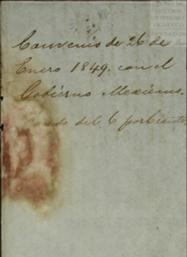 Convenio de 26 de
Enero 1849. con el
Gobierno Mexicano.
del 6 por Ciento